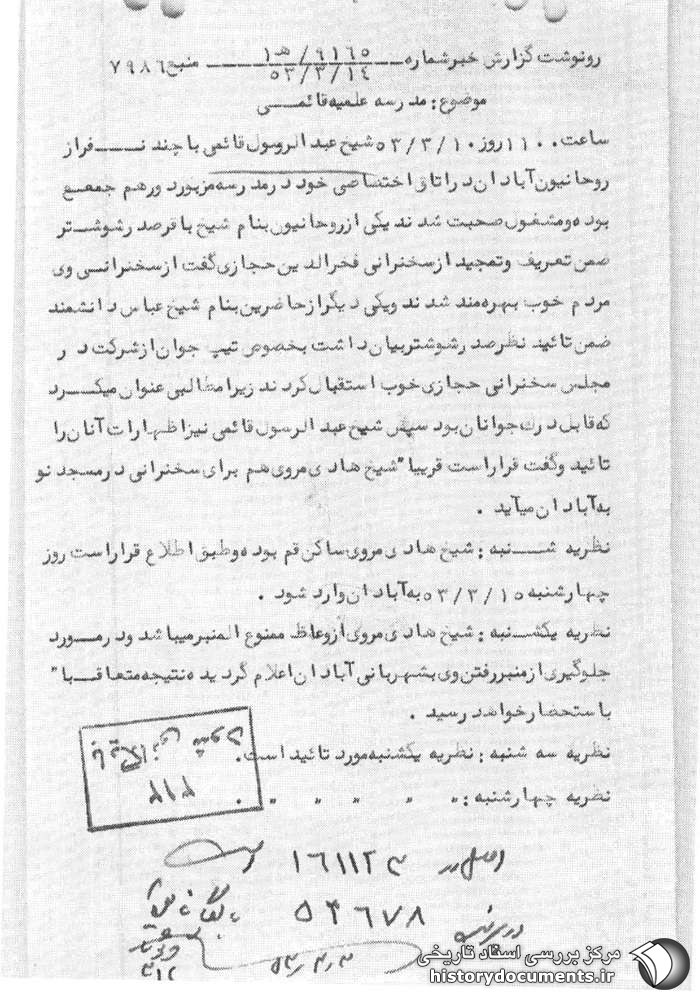 رونوشت گزارش خبر شماره ۶۱۶۵/هـ۱ منبع ۷۹۸۶
۵۳/۳/۱۴
موضوع: مدرسه علمیه قائمـــی
ساعت ۱۱۰۰ روز ۵۳/۳/۱۰ شیخ عبدالرسول قائمی با چند نـــفراز
روحانیون آبادان در اتاق اختصاصی خود در مدرسه مزبور دورهم جمع
بوده ومشغول صحبت شدند یکی از روحانیون بنام شیخ باقر صدر شوشـتر
ضمن تعریف وتمجید از سخنرانی فخرالدین حجازی گفت از سخنرانـی وی
مردم خوب بهره مند شدند ویکی دیگر از حاضرین بنام شیخ عباس دانشمند
ضمن تائید نظر صدر شوشتر بیان داشت بخصوص تیپ جوان از شرکت در
مجلس سخنرانی حجازی خوب استقبال کردند زیرا مطالبی عنوان میکـــرد
که قابل درک جوانان بود سپس شیخ عبدالرسول قائمی نیز اظهارات آنان را
تائید وگفت قرار است قریبا" شیخ هادی مروی هم برای سخنرانی در مسجد نو
به آبادان میآید .
نظریه شـــنبه : شیخ هادی مروی ساکن قم بوده وطبق اطلاع قرار است روز
چهارشنبه ۵۳/۳/۱۵ به آبادان وارد شود .
نظریه یکشـنبه : شیخ هادی مروی از وعاظ ممنوع المنبر میباشد ودر مـورد
جلوگیری از منبر رفتن وی بشهربانی آبادان اعلام گردیده نتیجه متعاقـبا"
باستحضار خواهد رسید .
نظریه سه شنبه : نظریه یکشنبه مورد تائید است .
نظریه چهارشنبه : " " " " " .
۸۱۸
اصل در ۱۶۱۱۲۳ است
در پرونده ۵۳۶۷۸
۵۳/۳/۳
مرکز بررسی اسناد تاریخی
historydocuments.ir